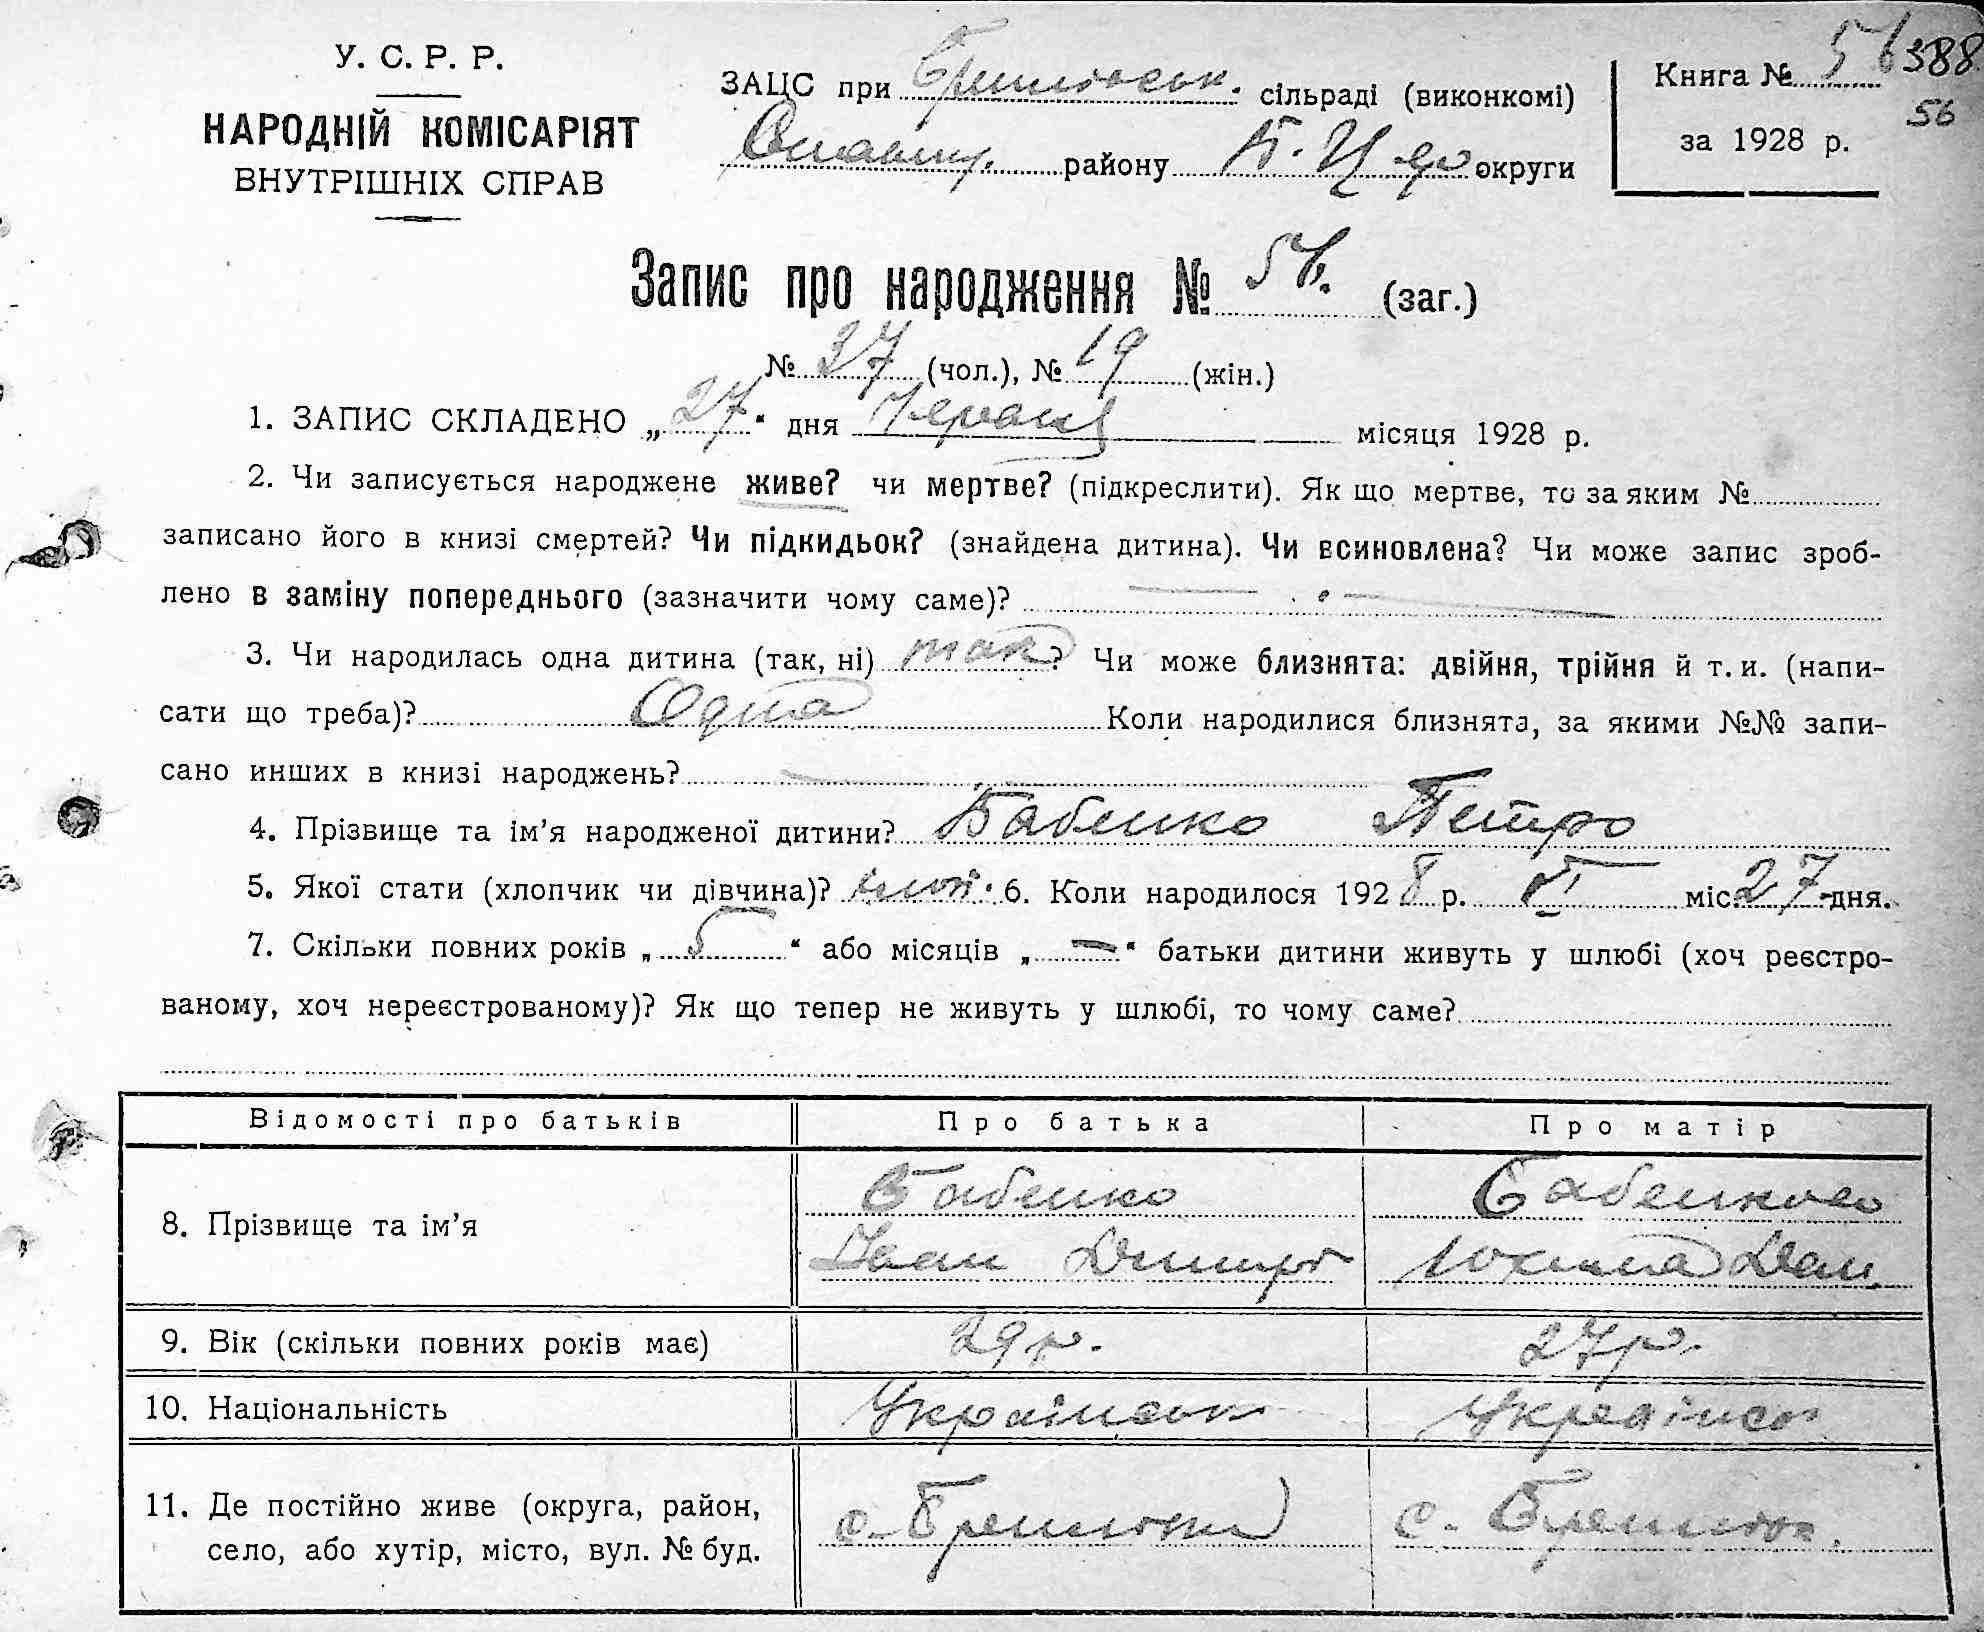 У. С. Р. Р.
НАРОДНІЙ КОМІСАРІЯТ
ВНУТРІШНІХ СПРАВ
ЗАЦС при сільраді (виконкомі)
району Б. Ц. округи
Книга № 56 388
56
за 1928 р.
Запис про народження № 56. (заг.)
№ 37 (чол.), № 19 (жін.)
1. ЗАПИС СКЛАДЕНО „27“ дня Червня місяця 1928 р.
2. Чи записується народжене живе? чи мертве? (підкреслити). Як що мертве, то за яким №
записано його в книзі смертей? Чи підкидьок? (знайдена дитина). Чи всиновлена? Чи може запис зроб-
лено в заміну попереднього (зазначити чому саме)? —
3. Чи народилась одна дитина (так, ні) так? Чи може близнята: двійня, трійня й т. и. (напи-
сати що треба)? Одна Коли народилися близнята, за якими №№ запи-
сано инших в книзі народжень? —
4. Прізвище та ім’я народженої дитини? Бабенко Петро
5. Якої стати (хлопчик чи дівчина)? хлоп. 6. Коли народилося 1928 р. VI міс. 27 дня.
7. Скільки повних років „5“ або місяців „—“ батьки дитини живуть у шлюбі (хоч реєстро-
ваному, хоч нереєстрованому)? Як що тепер не живуть у шлюбі, то чому саме?
Відомості про батьків Про батька Про матір
8. Прізвище та ім’я Бабенко Іван Дмитр Бабенкова Юхима Дан.
9. Вік (скільки повних років має) 29 р. 27 р.
10. Національність Українськ Українськ
11. Де постійно живе (округа, район,
село, або хутір, місто, вул. № буд. с.
с.